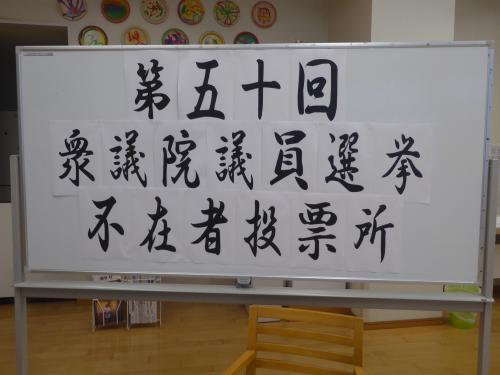 第五十回
衆議院議員選挙
不在者投票所